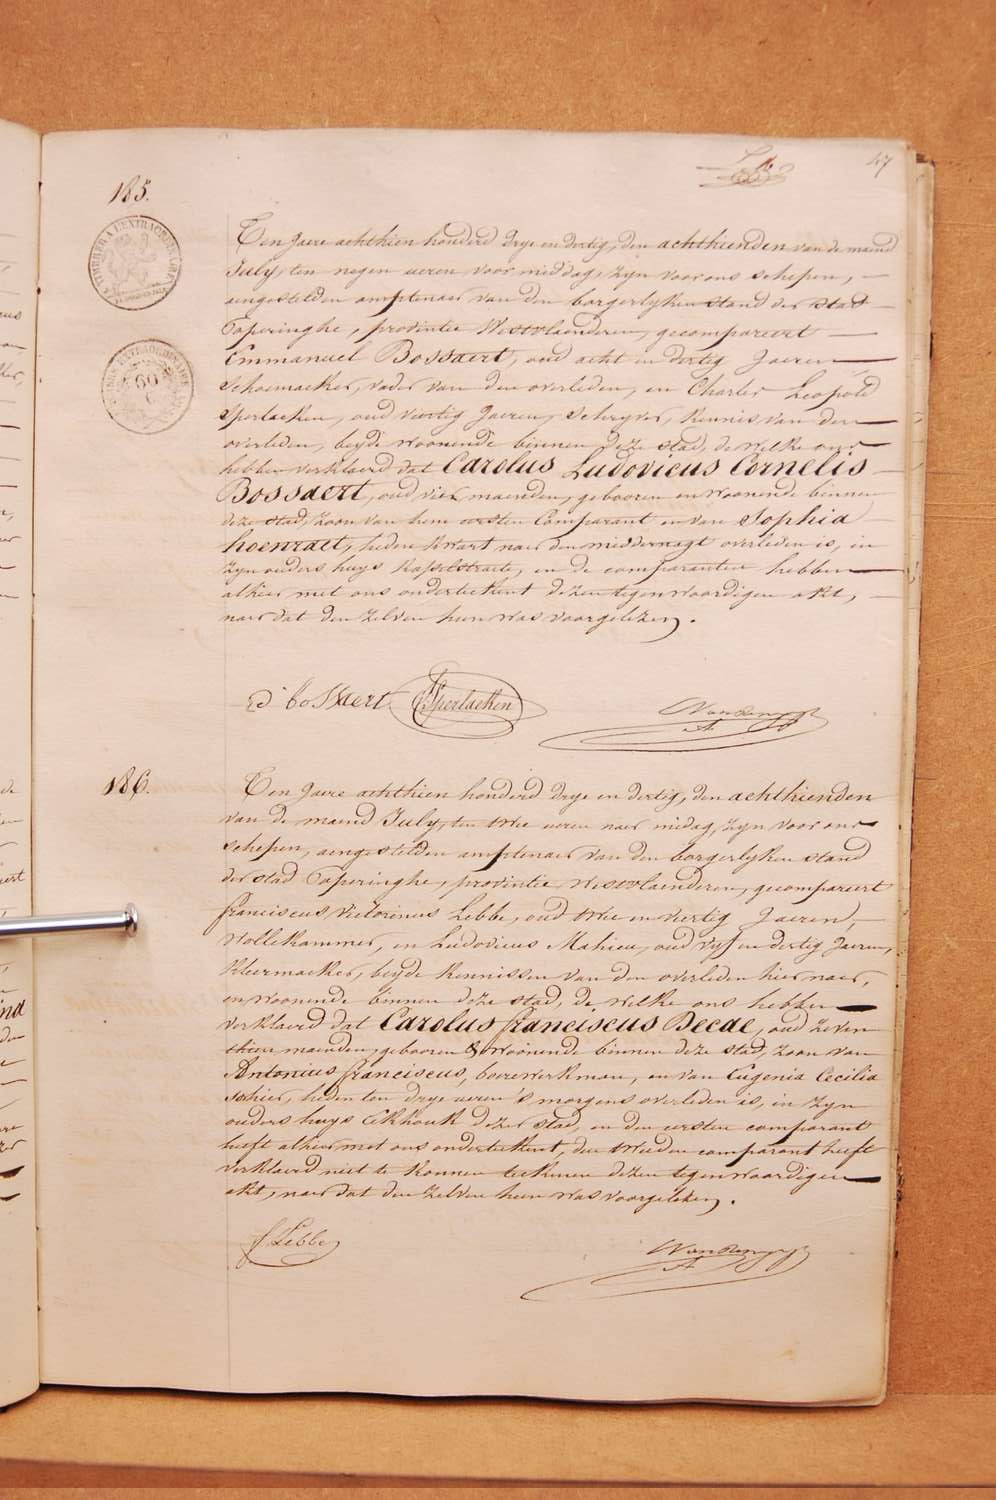 47
185.
Ten Jaere achthien honderd drye en dertig, den achthienden van de maend
July, ten negen ueren voor middag, zyn voor ons schepen,
aengestelden amptenaer van den borgerlyken stand der stad
Poperinghe, provintie Westvlaenderen, gecompareert
Emmanuel Bossaert, oud acht en dertig Jaeren
Schoemaeker, vader van den overleden, en Charles Leopold
Sperlaeken, oud veertig Jaeren, Schryver, Kennis van den
overleden, beyde woonende binnen deze stad, de welke ons
hebben verklaerd dat Carolus Ludovicus Cornelis
Bossaert, oud vier maenden, gebooren en woonende binnen
deze stad, zoon van hem eersten Comparant en van Sophia
hoenraet, heden kwart naer den middernagt overleden is, in
zyn ouders huys Kasselstraete, en de comparanten hebben
alhier met ons onderteekent dezen tegenwoordigen akt,
naer dat den zelven hun was voorgelezen.
E bossaert CSperlaeken
186.
Ten Jaere achthien honderd drye en dertig, den achthienden
van de maend July, ten twee ueren naer midag, zyn voor ons
schepen, aengestelden amptenaer van den borgerlyken stand
der stad Poperinghe, provintie Westvlaenderen, gecompareert
franciscus Victorinus Lebbe, oud twee en viertig Jaeren,
Wollekammer, en Ludovicus Mahieu, oud vyf en dertig Jaeren,
Kleermaeker, beyde kennissen van den overleden hier naer,
en woonende binnen deze stad, de welke ons hebben
verklaerd dat Carolus franciscus Decae, oud zeven
thien maenden, gebooren & woonende binnen deze stad, zoon van
Antonius franciscus, boerewerkman, en van Eugenia Cecilia
Sohier, heden ten drye ueren 's morgens overleden is, in zyn
ouders huys Eekhouk dezer stad, en den eersten comparant
heeft alhier met ons onderteekent, den tweeden comparant heeft
verklaerd niet te konnen teekenen dezen tegenwoordigen
akt, naer dat den zelven hun was voorgelezen.
f Lebbe